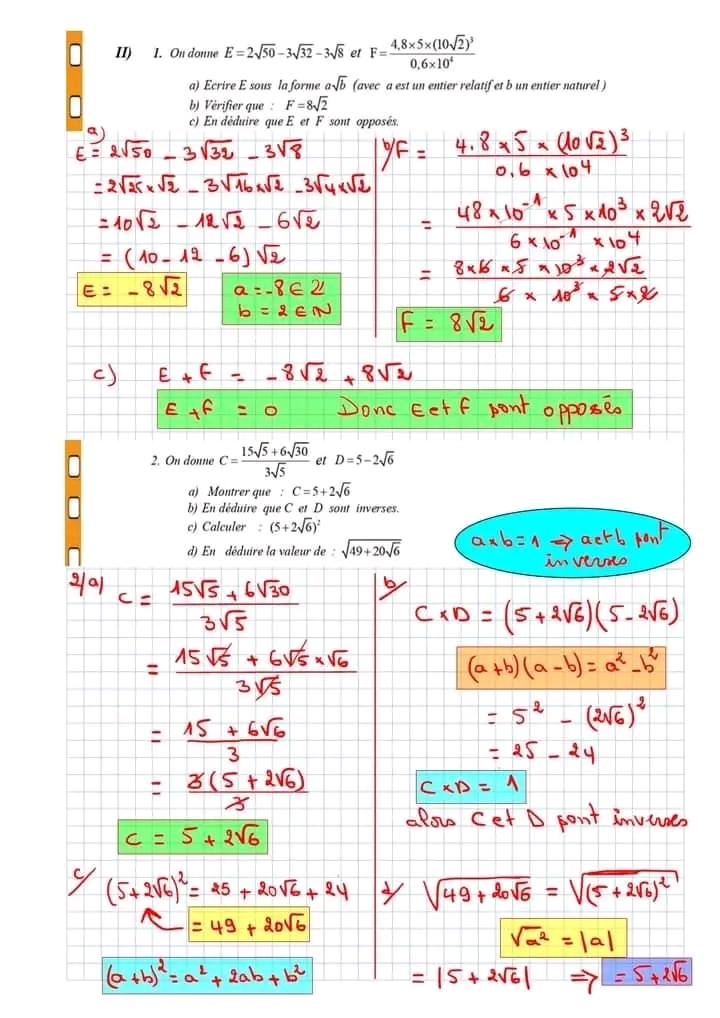 II) 1. On donne E = 2√50 − 3√32 − 3√8 et F = (4,8×5×(10√2)³)/(0,6×10⁴)
a) Ecrire E sous la forme a√b (avec a est un entier relatif et b un entier naturel)
b) Vérifier que : F = 8√2
c) En déduire que E et F sont opposés.
a)
E = 2√50 − 3√32 − 3√8
= 2√25 × √2 − 3√16 × √2 − 3√4 × √2
= 10√2 − 12√2 − 6√2
= (10 − 12 − 6)√2
E = −8√2
a = −8 ∈ ℤ
b = 2 ∈ ℕ
b/ F = (4.8 × 5 × (10√2)³)/(0,6 × 10⁴)
= (48 × 10⁻¹ × 5 × 10³ × 2√2)/(6 × 10⁻¹ × 10⁴)
= (8 × 6 × 5 × 10³ × 2√2)/(6 × 10³ × 5 × 2)
F = 8√2
c) E + F = −8√2 + 8√2
E + F = 0 Donc E et F sont opposés
2. On donne C = (15√5 + 6√30)/(3√5) et D = 5 − 2√6
a) Montrer que : C = 5 + 2√6
b) En déduire que C et D sont inverses.
c) Calculer : (5 + 2√6)²
d) En déduire la valeur de : √(49 + 20√6)
a × b = 1 ⇒ a et b sont
inverses
2/a) C = (15√5 + 6√30)/(3√5)
= (15√5 + 6√5 × √6)/(3√5)
= (15 + 6√6)/3
= (3(5 + 2√6))/3
C = 5 + 2√6
b/
C × D = (5 + 2√6)(5 − 2√6)
(a + b)(a − b) = a² − b²
= 5² − (2√6)²
= 25 − 24
C × D = 1
alors C et D sont inverses
c/ (5 + 2√6)² = 25 + 20√6 + 24
= 49 + 20√6
(a + b)² = a² + 2ab + b²
d/ √(49 + 20√6) = √((5 + 2√6)²)
√a² = |a|
= |5 + 2√6| ⇒ = 5 + 2√6